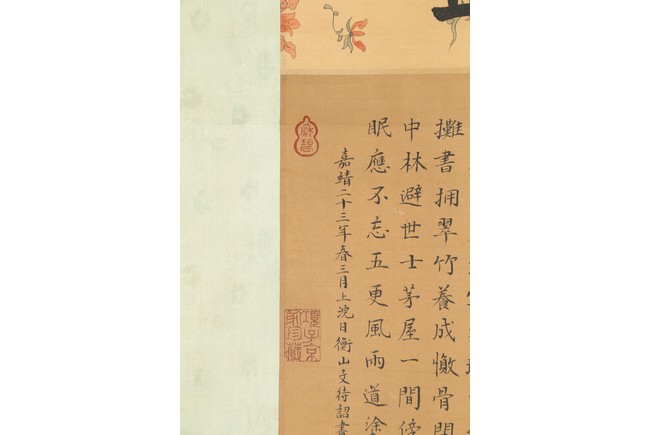 攤書拥翠竹養成懶骨
中林避世士茅屋一間傍
眠應不忘五更風雨道塗
嘉靖二十三年春三月上浣日衡山文待詔書
項子京家珍藏